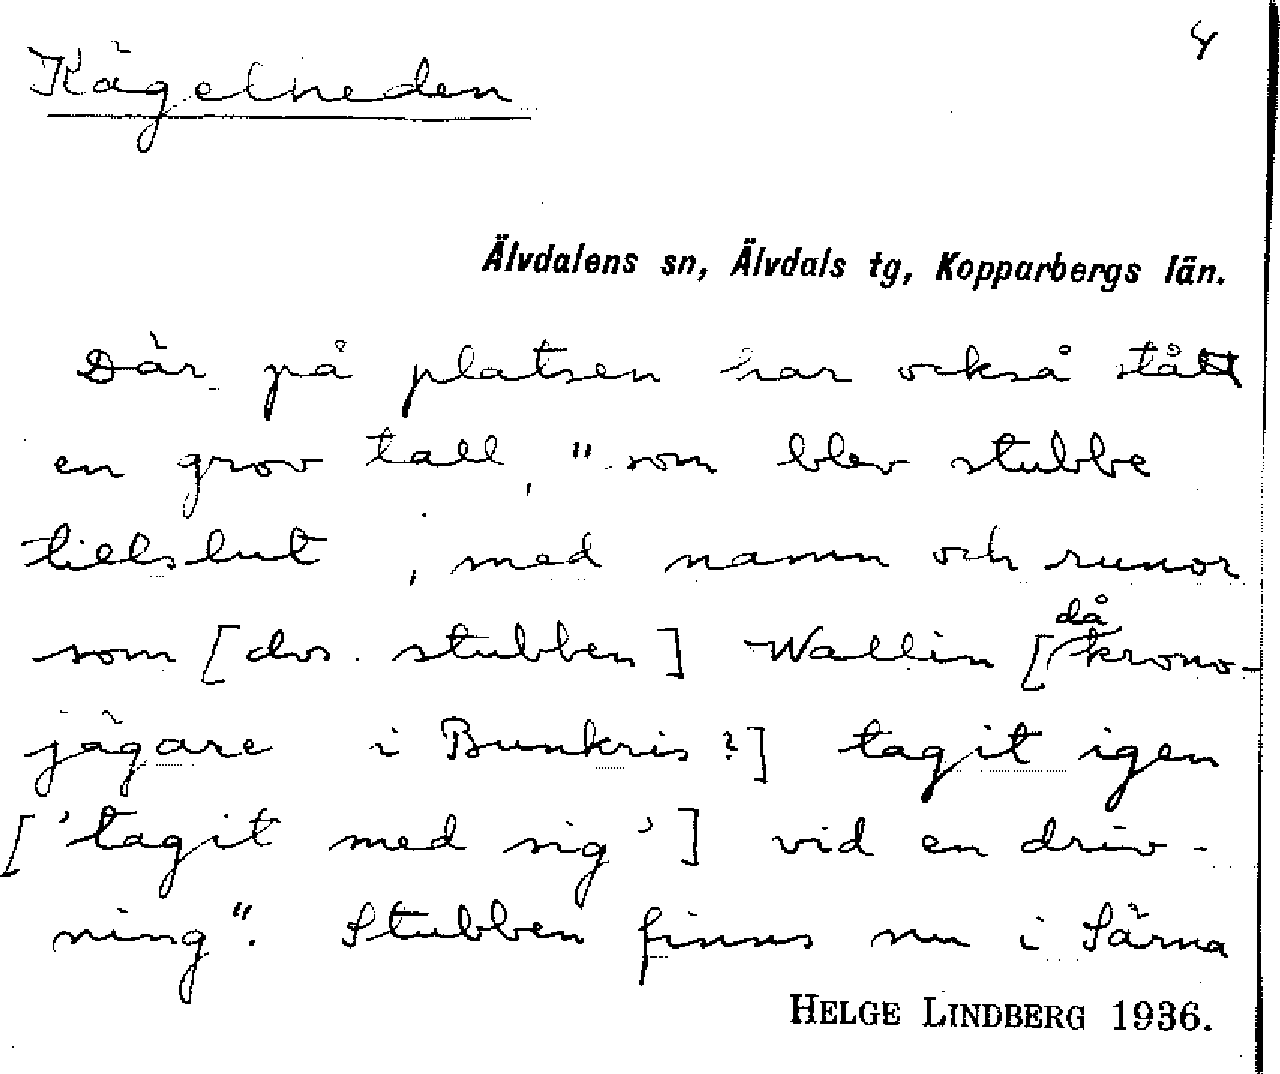 4
Kägelheden
Älvdalens sn, Älvdals tg, Kopparbergs län.
Där på platsen har också stått
en grov tall, "som blev stubbe
tillslut, med namn och runor
som [dvs. stubben] Wallin [då krono-
jägare i Bunkris?] tagit igen
['tagit med sig'] vid en driv-
ning". Stubben finns nu i Särna
HELGE LINDBERG 1936.